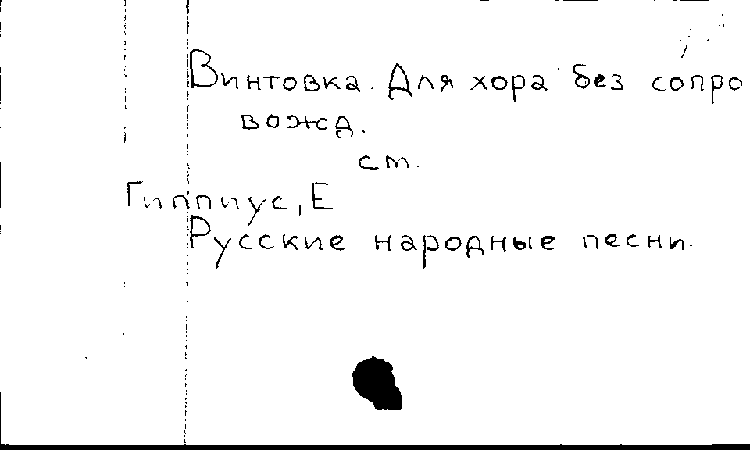 Винтовка. Для хора без сопро
вожд.
см.
Гиппиус, Е
Русские народные песни.